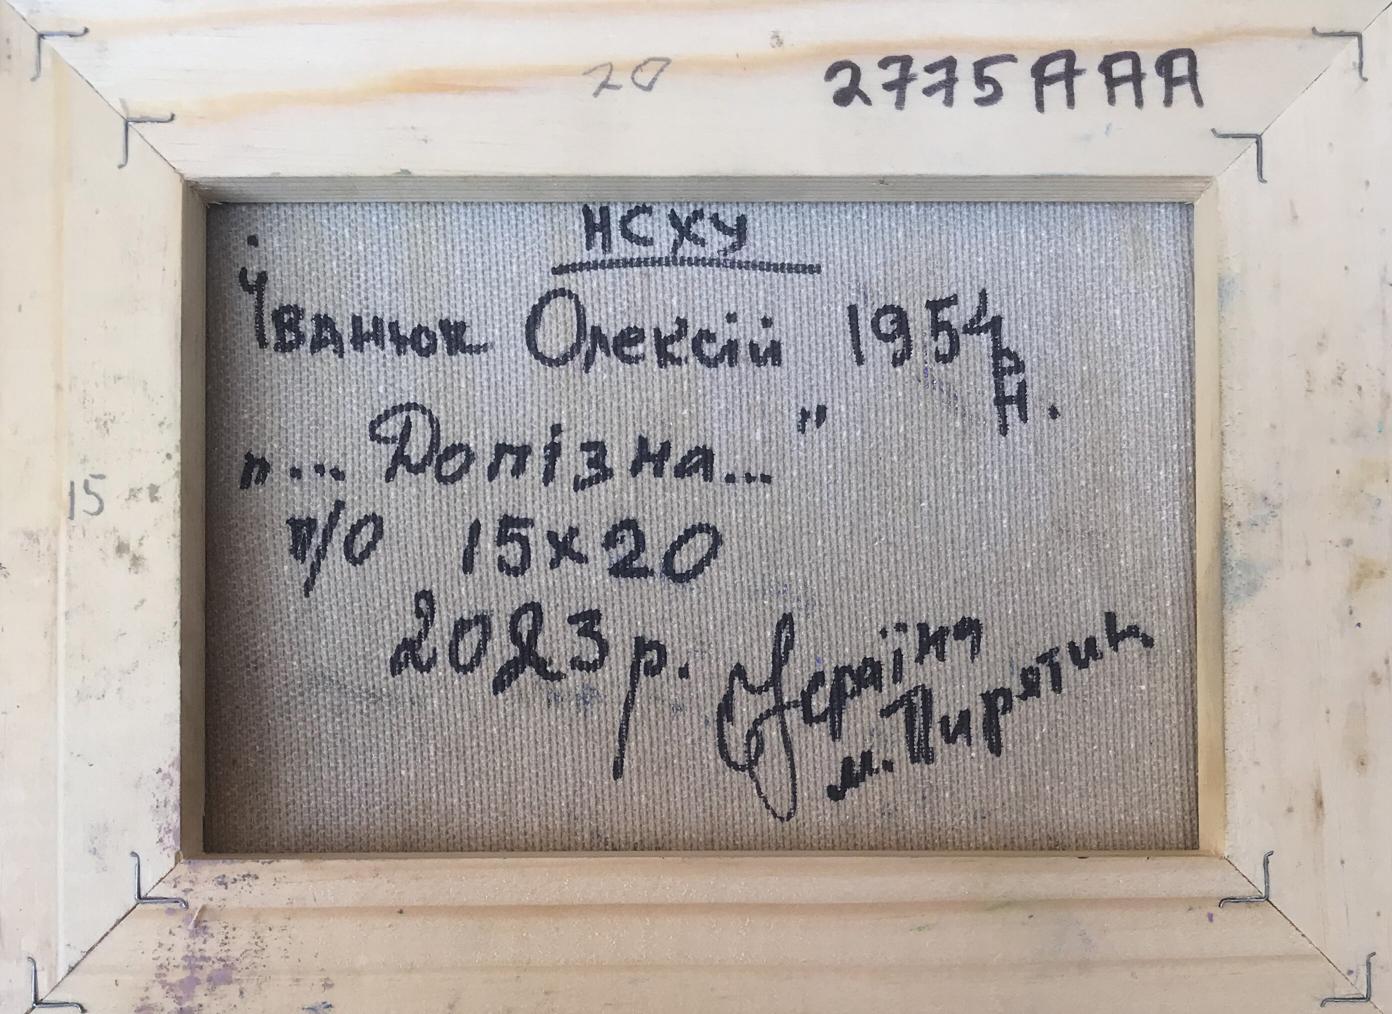 20
2775AAA
НСХУ
Іванюк Олексій 1954 р.н.
"... Допізна..."
п/о 15х20
2023 р. Україна
м. Пирятин
15